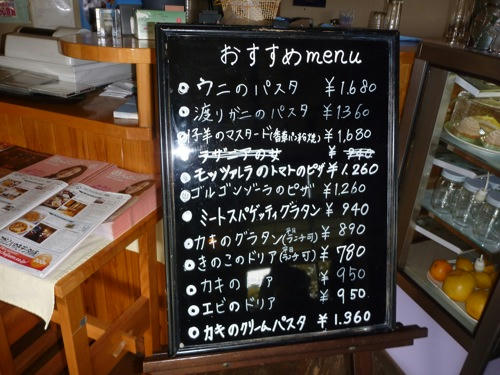 おすすめmenu
ウニのパスタ ¥1.680
渡りガニのパスタ ¥1360
仔羊のマスタード(香草パン粉焼) ¥1,680
ラザニアの ¥ 940
モッツァレラのトマトのピザ ¥1.260
ゴルゴンゾーラのピザ ¥1,260
ミートスパゲッティグラタン ¥940
カキのグラタン(平日ランチ可) ¥890
きのこのドリア(平日ランチ可) ¥780
カキの リア ¥950
エビのドリア ¥950
カキのクリームパスタ ¥1.360